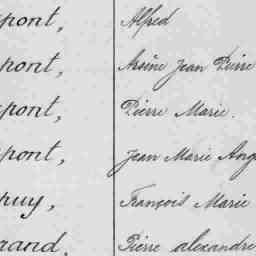 pont, Alfred
pont, Arsène Jean Pierre
pont, Pierre Marie.
pont, Jean Marie Ang
puy, François Marie
rand, Pierre alexandre